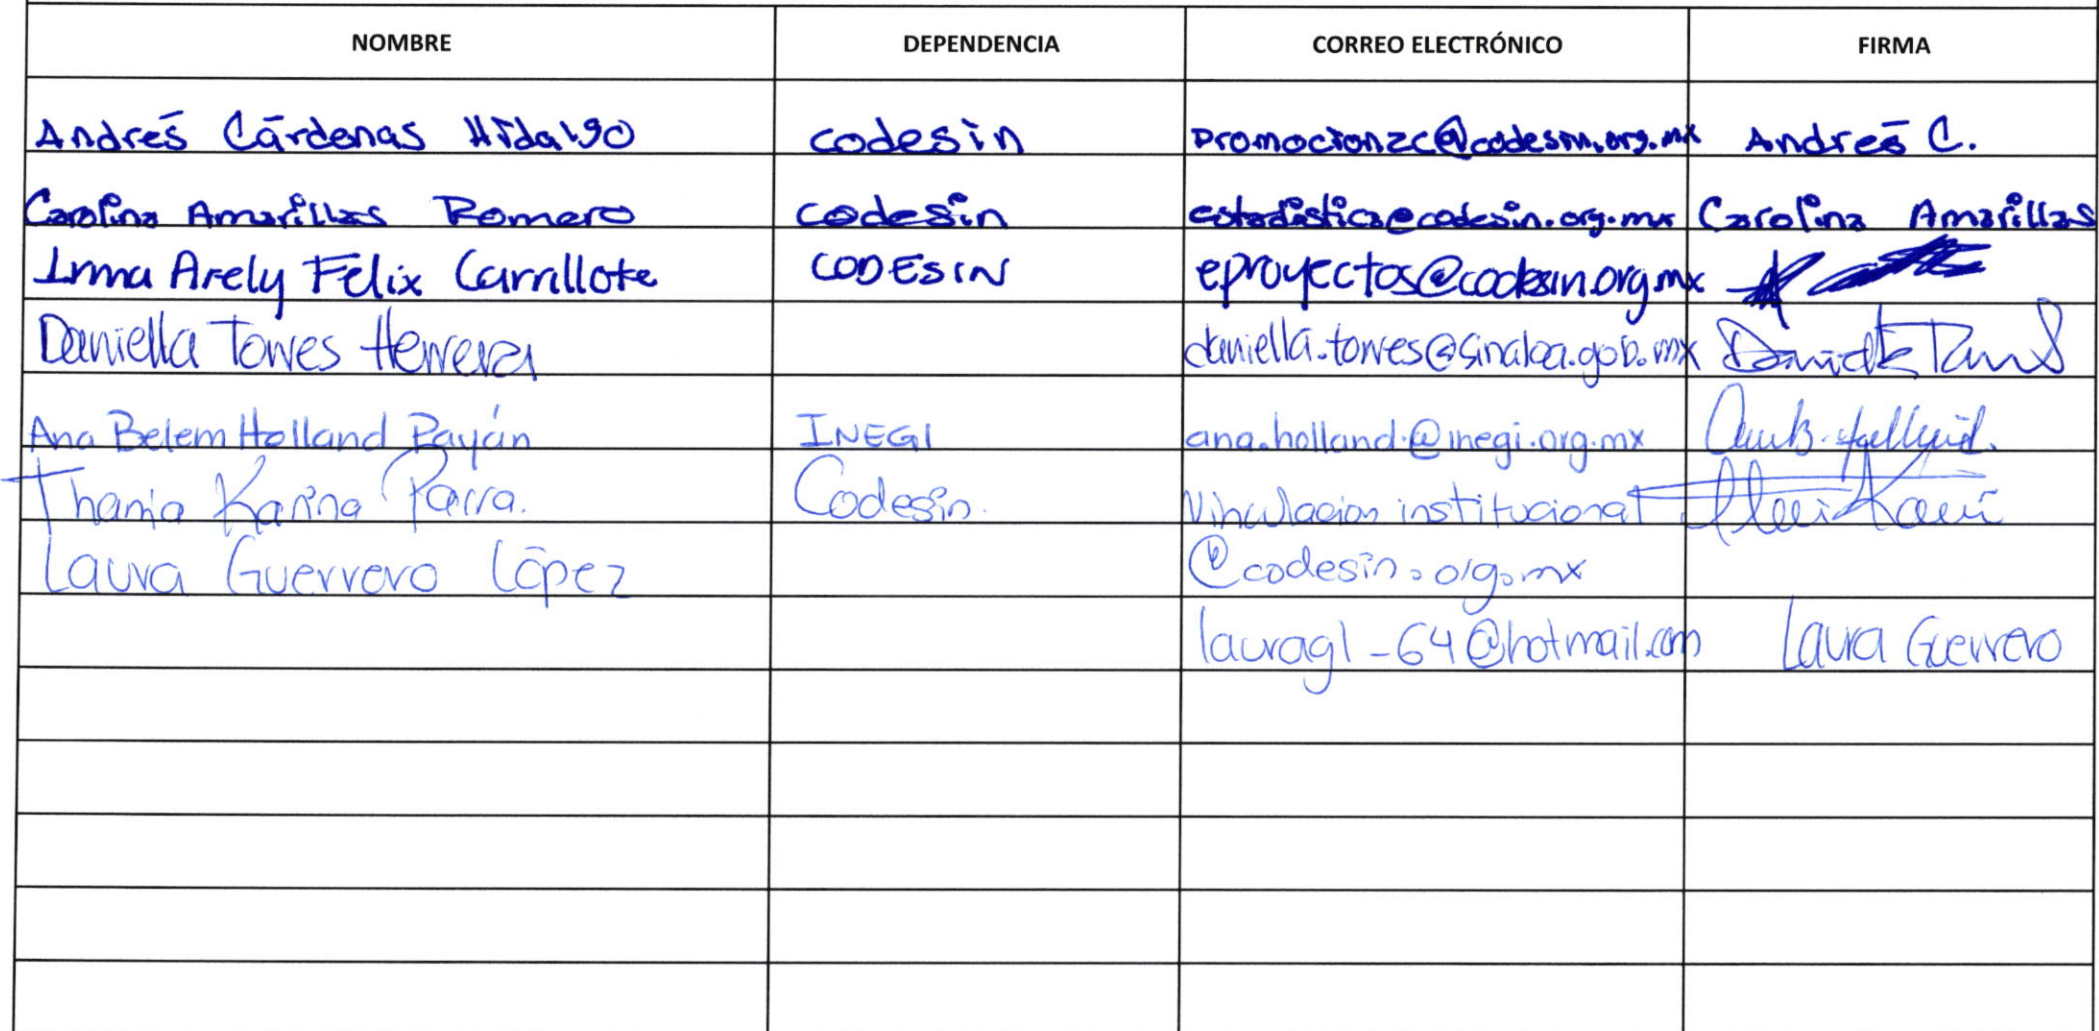 NOMBRE DEPENDENCIA CORREO ELECTRÓNICO FIRMA
Andrés Cárdenas Hidalgo codesin promocionzc@codesin.org.mx Andrés C.
Carolina Amarillas Romero codesin estadistica@codesin.org.mx Carolina Amarillas
Irma Arely Felix Carrillote CODESIN eproyectos@codesin.org.mx
Daniella Torres Herrera daniella.torres@sinaloa.gob.mx
Ana Belem Holland Payán INEGI ana.holland.@inegi.org.mx
Thania Karina Parra. Codesin. Vinculacion institucional
Laura Guerrero López @codesin.org.mx
lauragl-64@hotmail.com Laura Guerrero